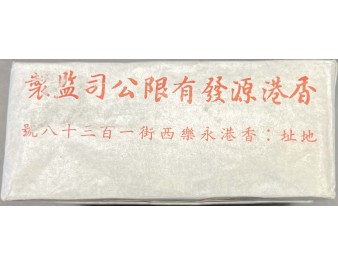 香港源發有限公司監製
地址：香港永樂西街一百二十八號